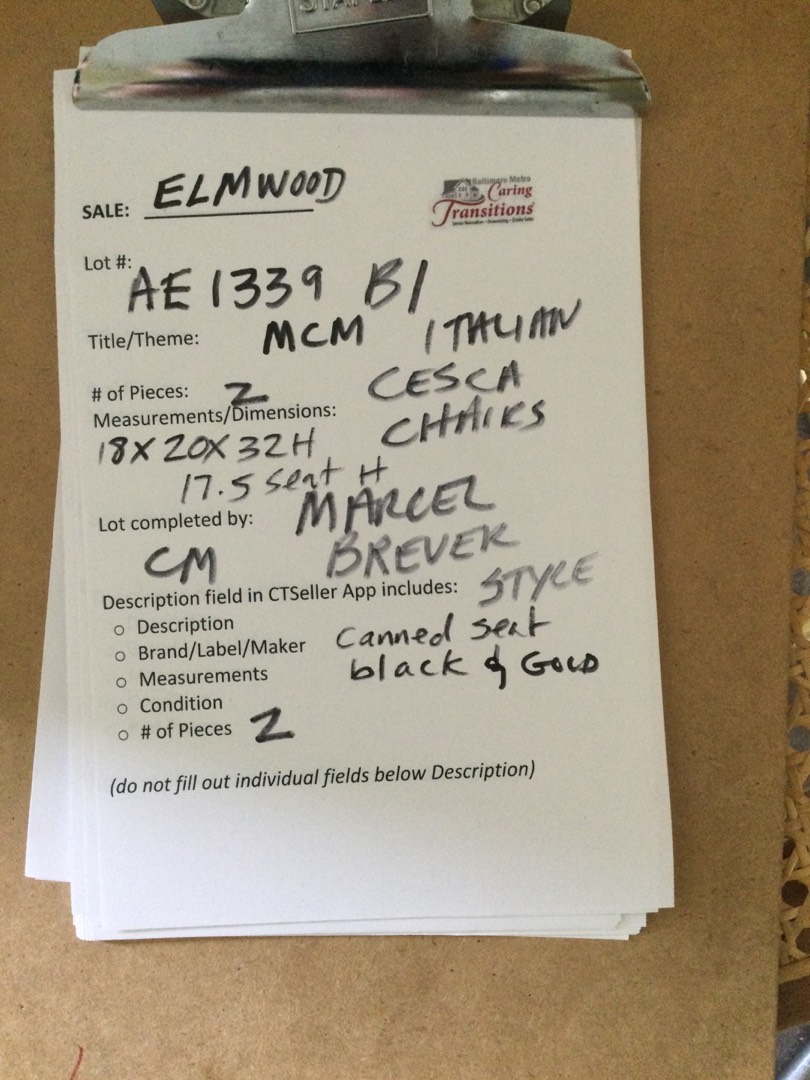 SALE: ELMWOOD
Baltimore Metro
Caring
Transitions
Lot #: AE 1339 B/
Title/Theme: MCM ITALIAN
# of Pieces: 2 CESCA
Measurements/Dimensions: CHAIRS
18X20X32H
17.5 seat H
Lot completed by: MARCEL
CM BREUER
Description field in CTSeller App includes: STYLE
o Description
o Brand/Label/Maker Canned seat
o Measurements black & GOLD
o Condition
o # of Pieces 2
(do not fill out individual fields below Description)